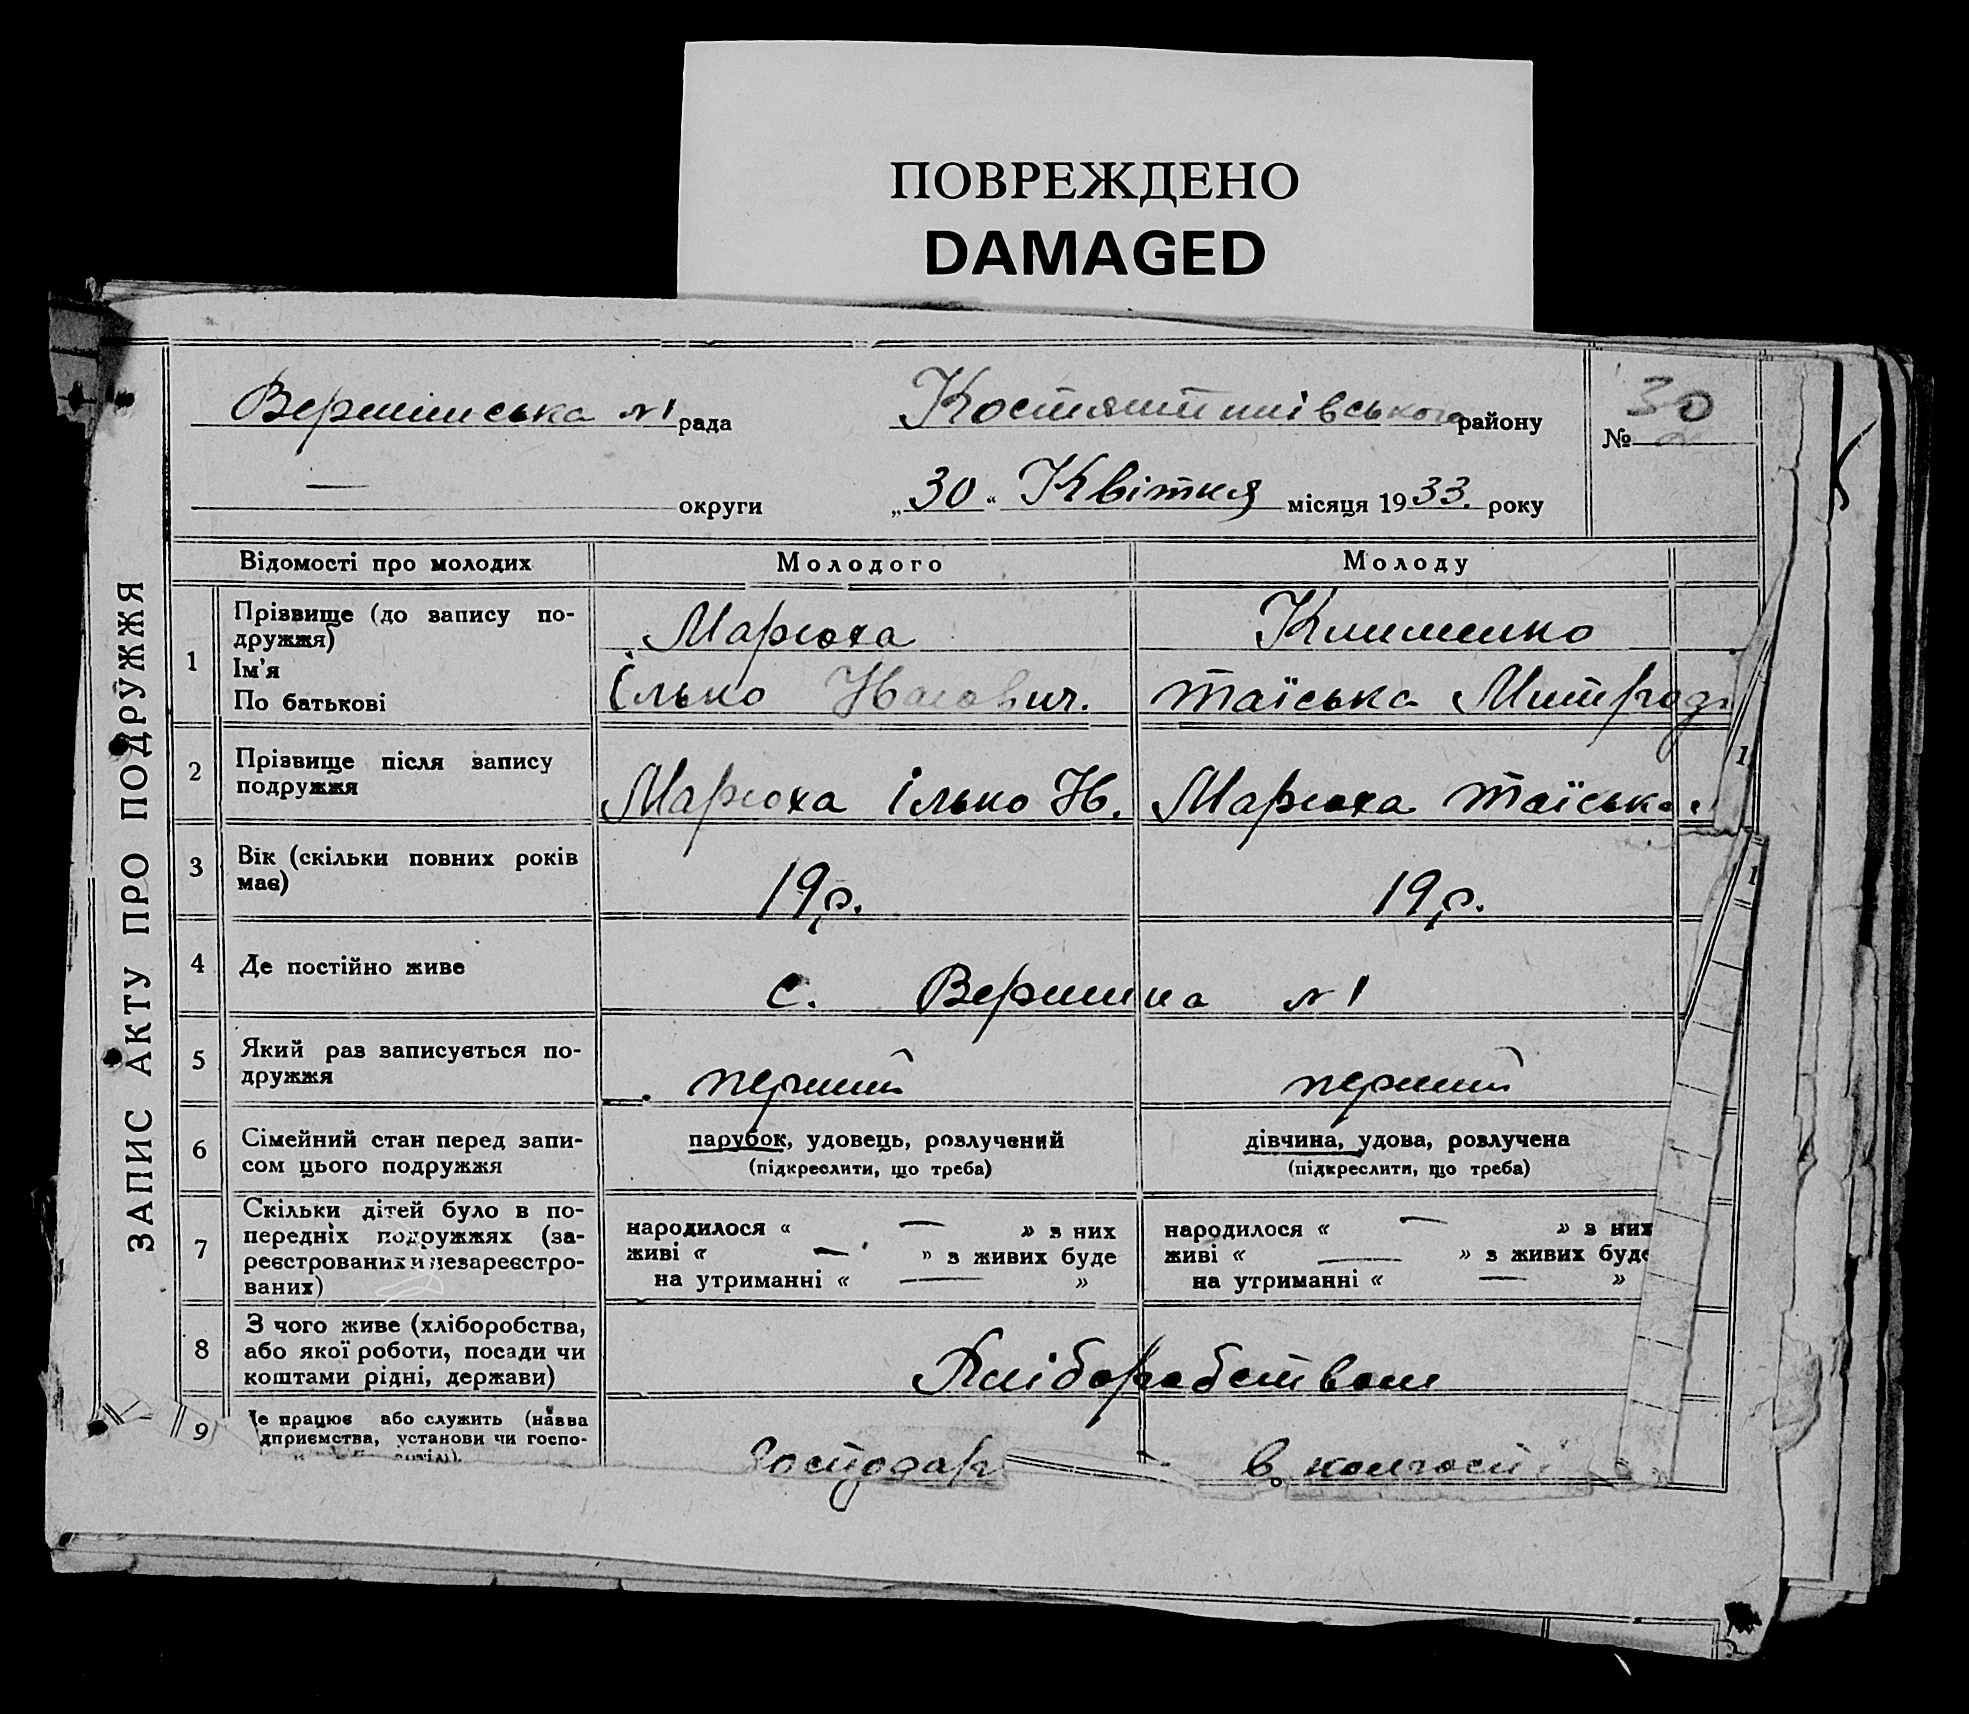 ПОВРЕЖДЕНО
DAMAGED
ЗАПИС АКТУ ПРО ПОДРУЖЖЯ
Вершинська №1 рада Костянтинівського району № 30
— округи „30“ Квітня місяця 1933. року
Відомості про молодих Молодого Молоду
1 Прізвище (до запису по-
дружжя) Марюха Клименко
Ім'я
По батькові Ілько Ивович. Таїська Митрод
2 Прізвище після запису
подружжя Марюха Ілько Ив. Марюха Таїська
3 Вік (скільки повних років
має) 19 р. 19 р.
4 Де постійно живе с. Вершина №1
5 Який раз записується по-
дружжя перший перший
6 Сімейний стан перед запи- парубок, удовець, розлучений дівчина, удова, розлучена
сом цього подружжя (підкреслити, що треба) (підкреслити, що треба)
7 Скільки дітей було в по-
передніх подружжях (за- народилося « — » з них народилося « — » з них
реєстрованих и незареєстро- живі « — » з живих буде живі « — » з живих буде
ваних) на утриманні « — » на утриманні « — »
8 З чого живе (хліборобства,
або якої роботи, посади чи
коштами рідні, держави) Хліборобством
9 е працює або служить (назва
дприємства, установи чи госпо-
Господар в колгоспі
1
1